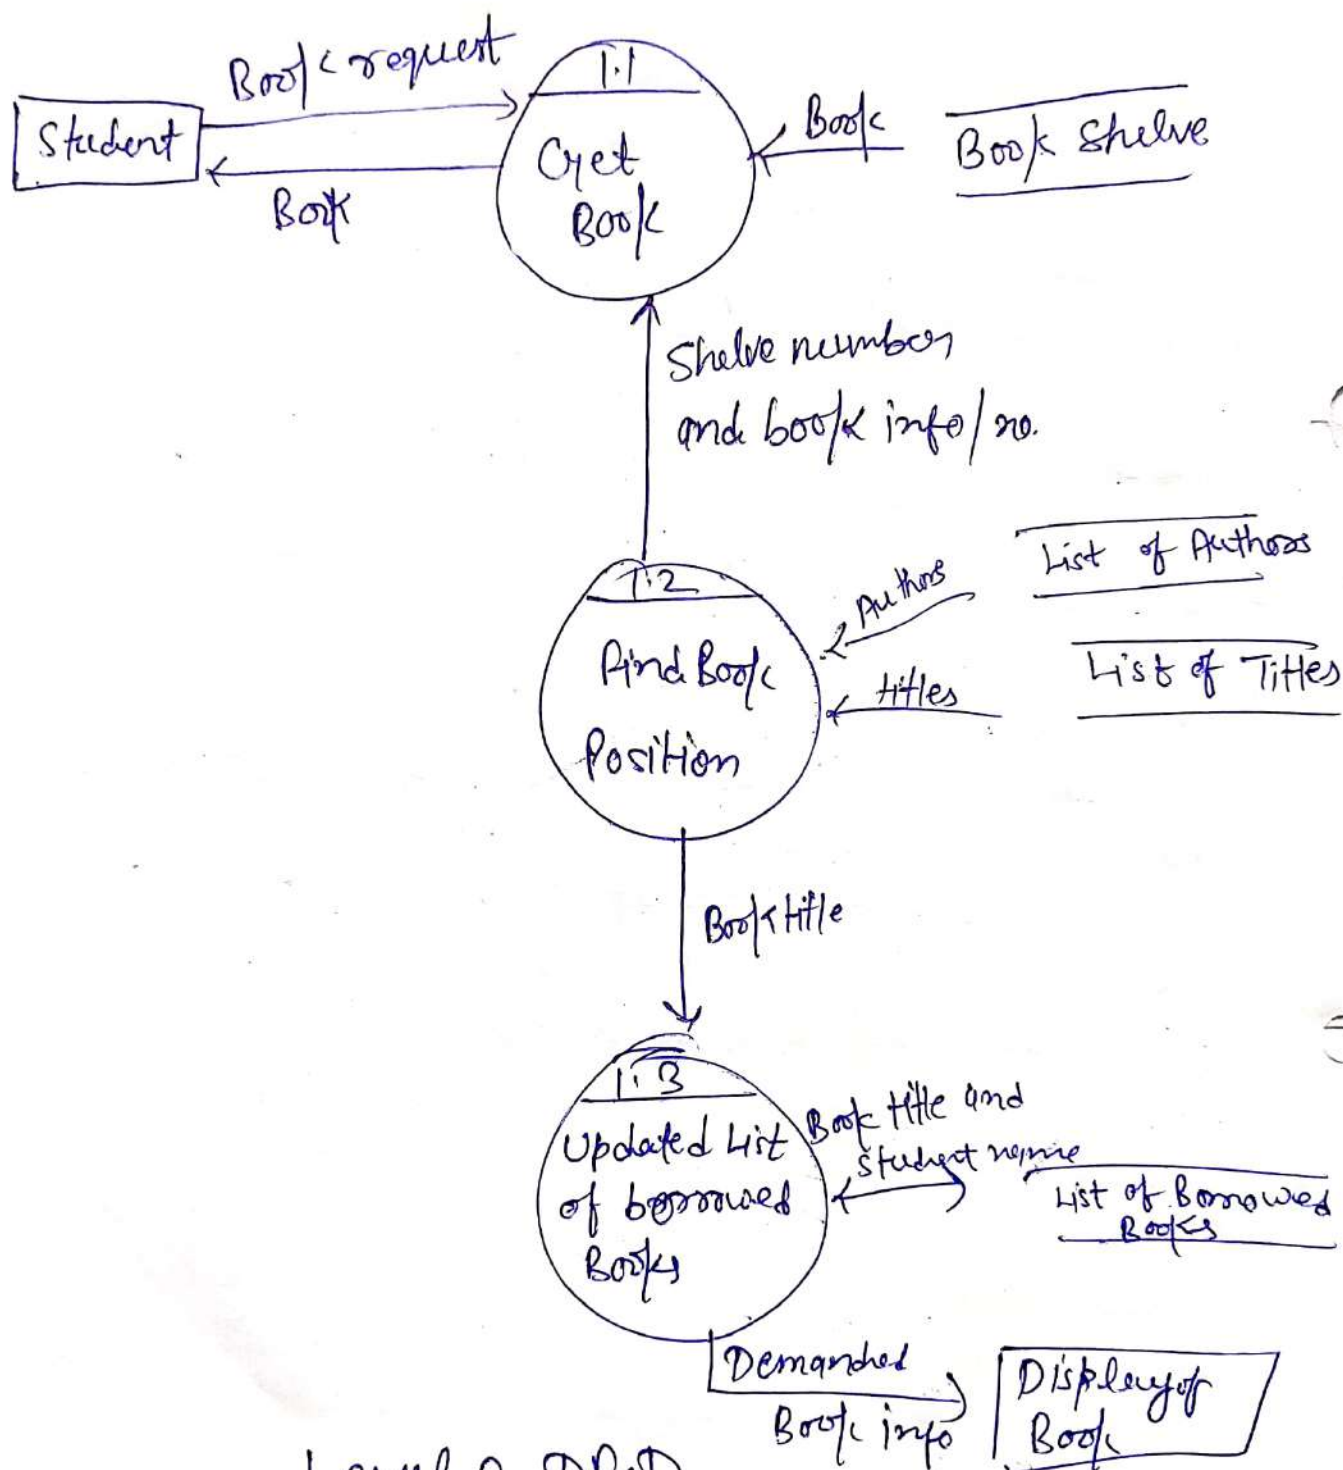 Book request
1.1
Student
Get
Book
Book
Book
Book Shelve
Shelve number
and book info/no.
1.2
Find Book
Position
Authors
List of Authors
titles
List of Titles
Book title
1.3
Updated List
of borrowed
Books
Book title and
student name
List of Borrowed
Books
Demanded
Book info
Display of
Book